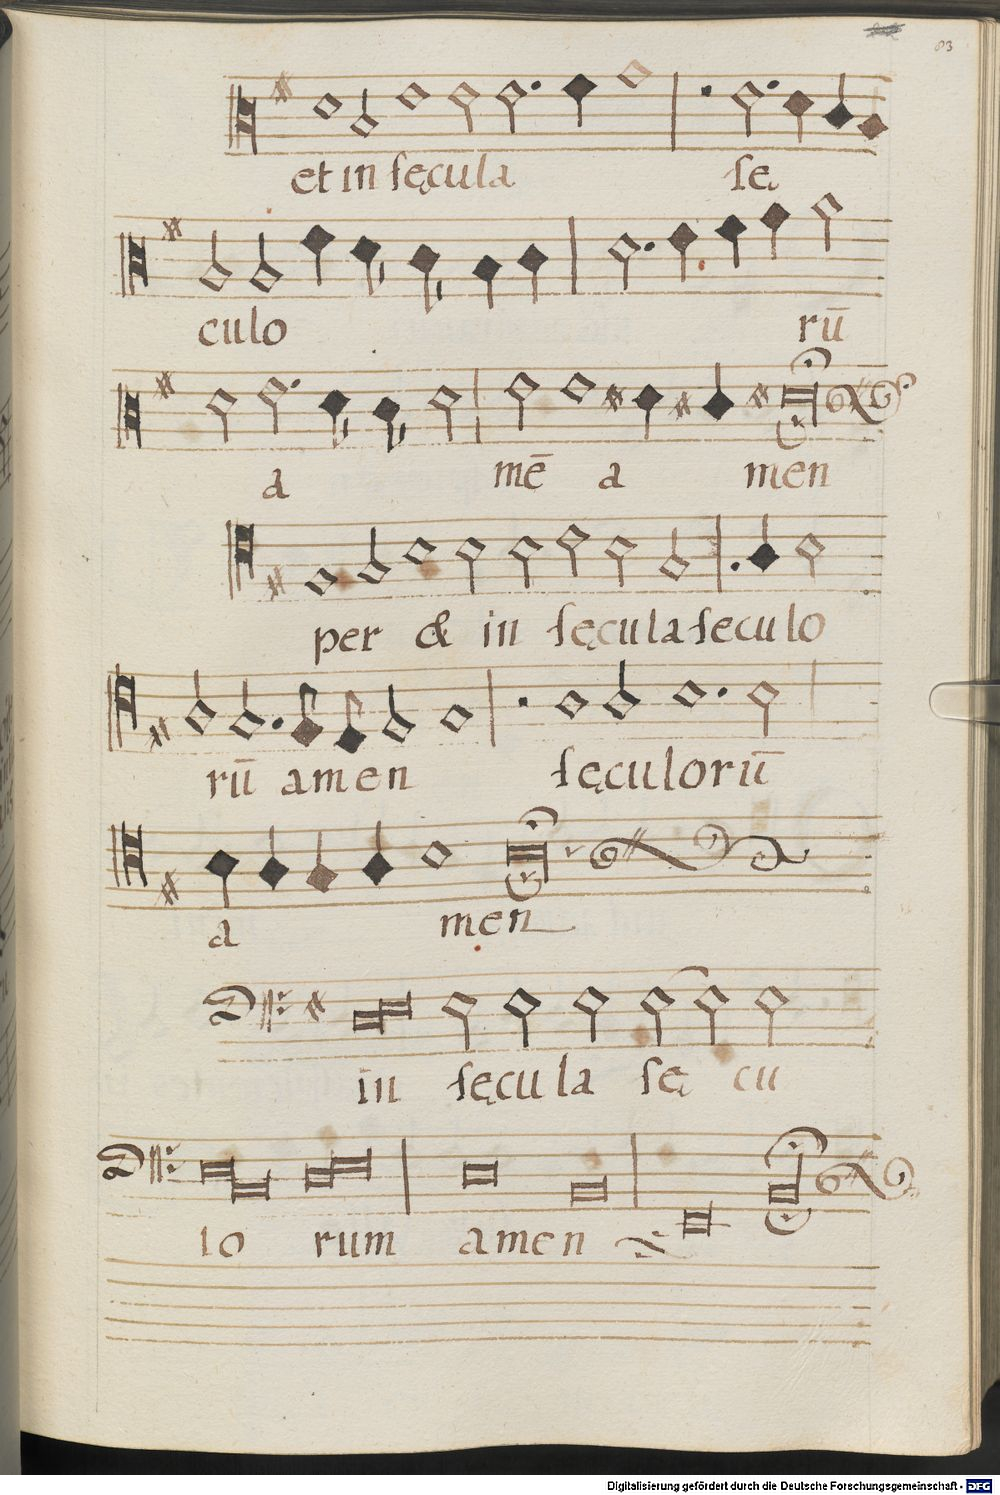 83
et in sęcula sę
culo rū
a mē a men
per & in sęcula seculo
rū amen sęculorū
a men
in sęcula sę cu
lo rum amen
Digitalisierung gefördert durch die Deutsche Forschungsgemeinschaft - DFG